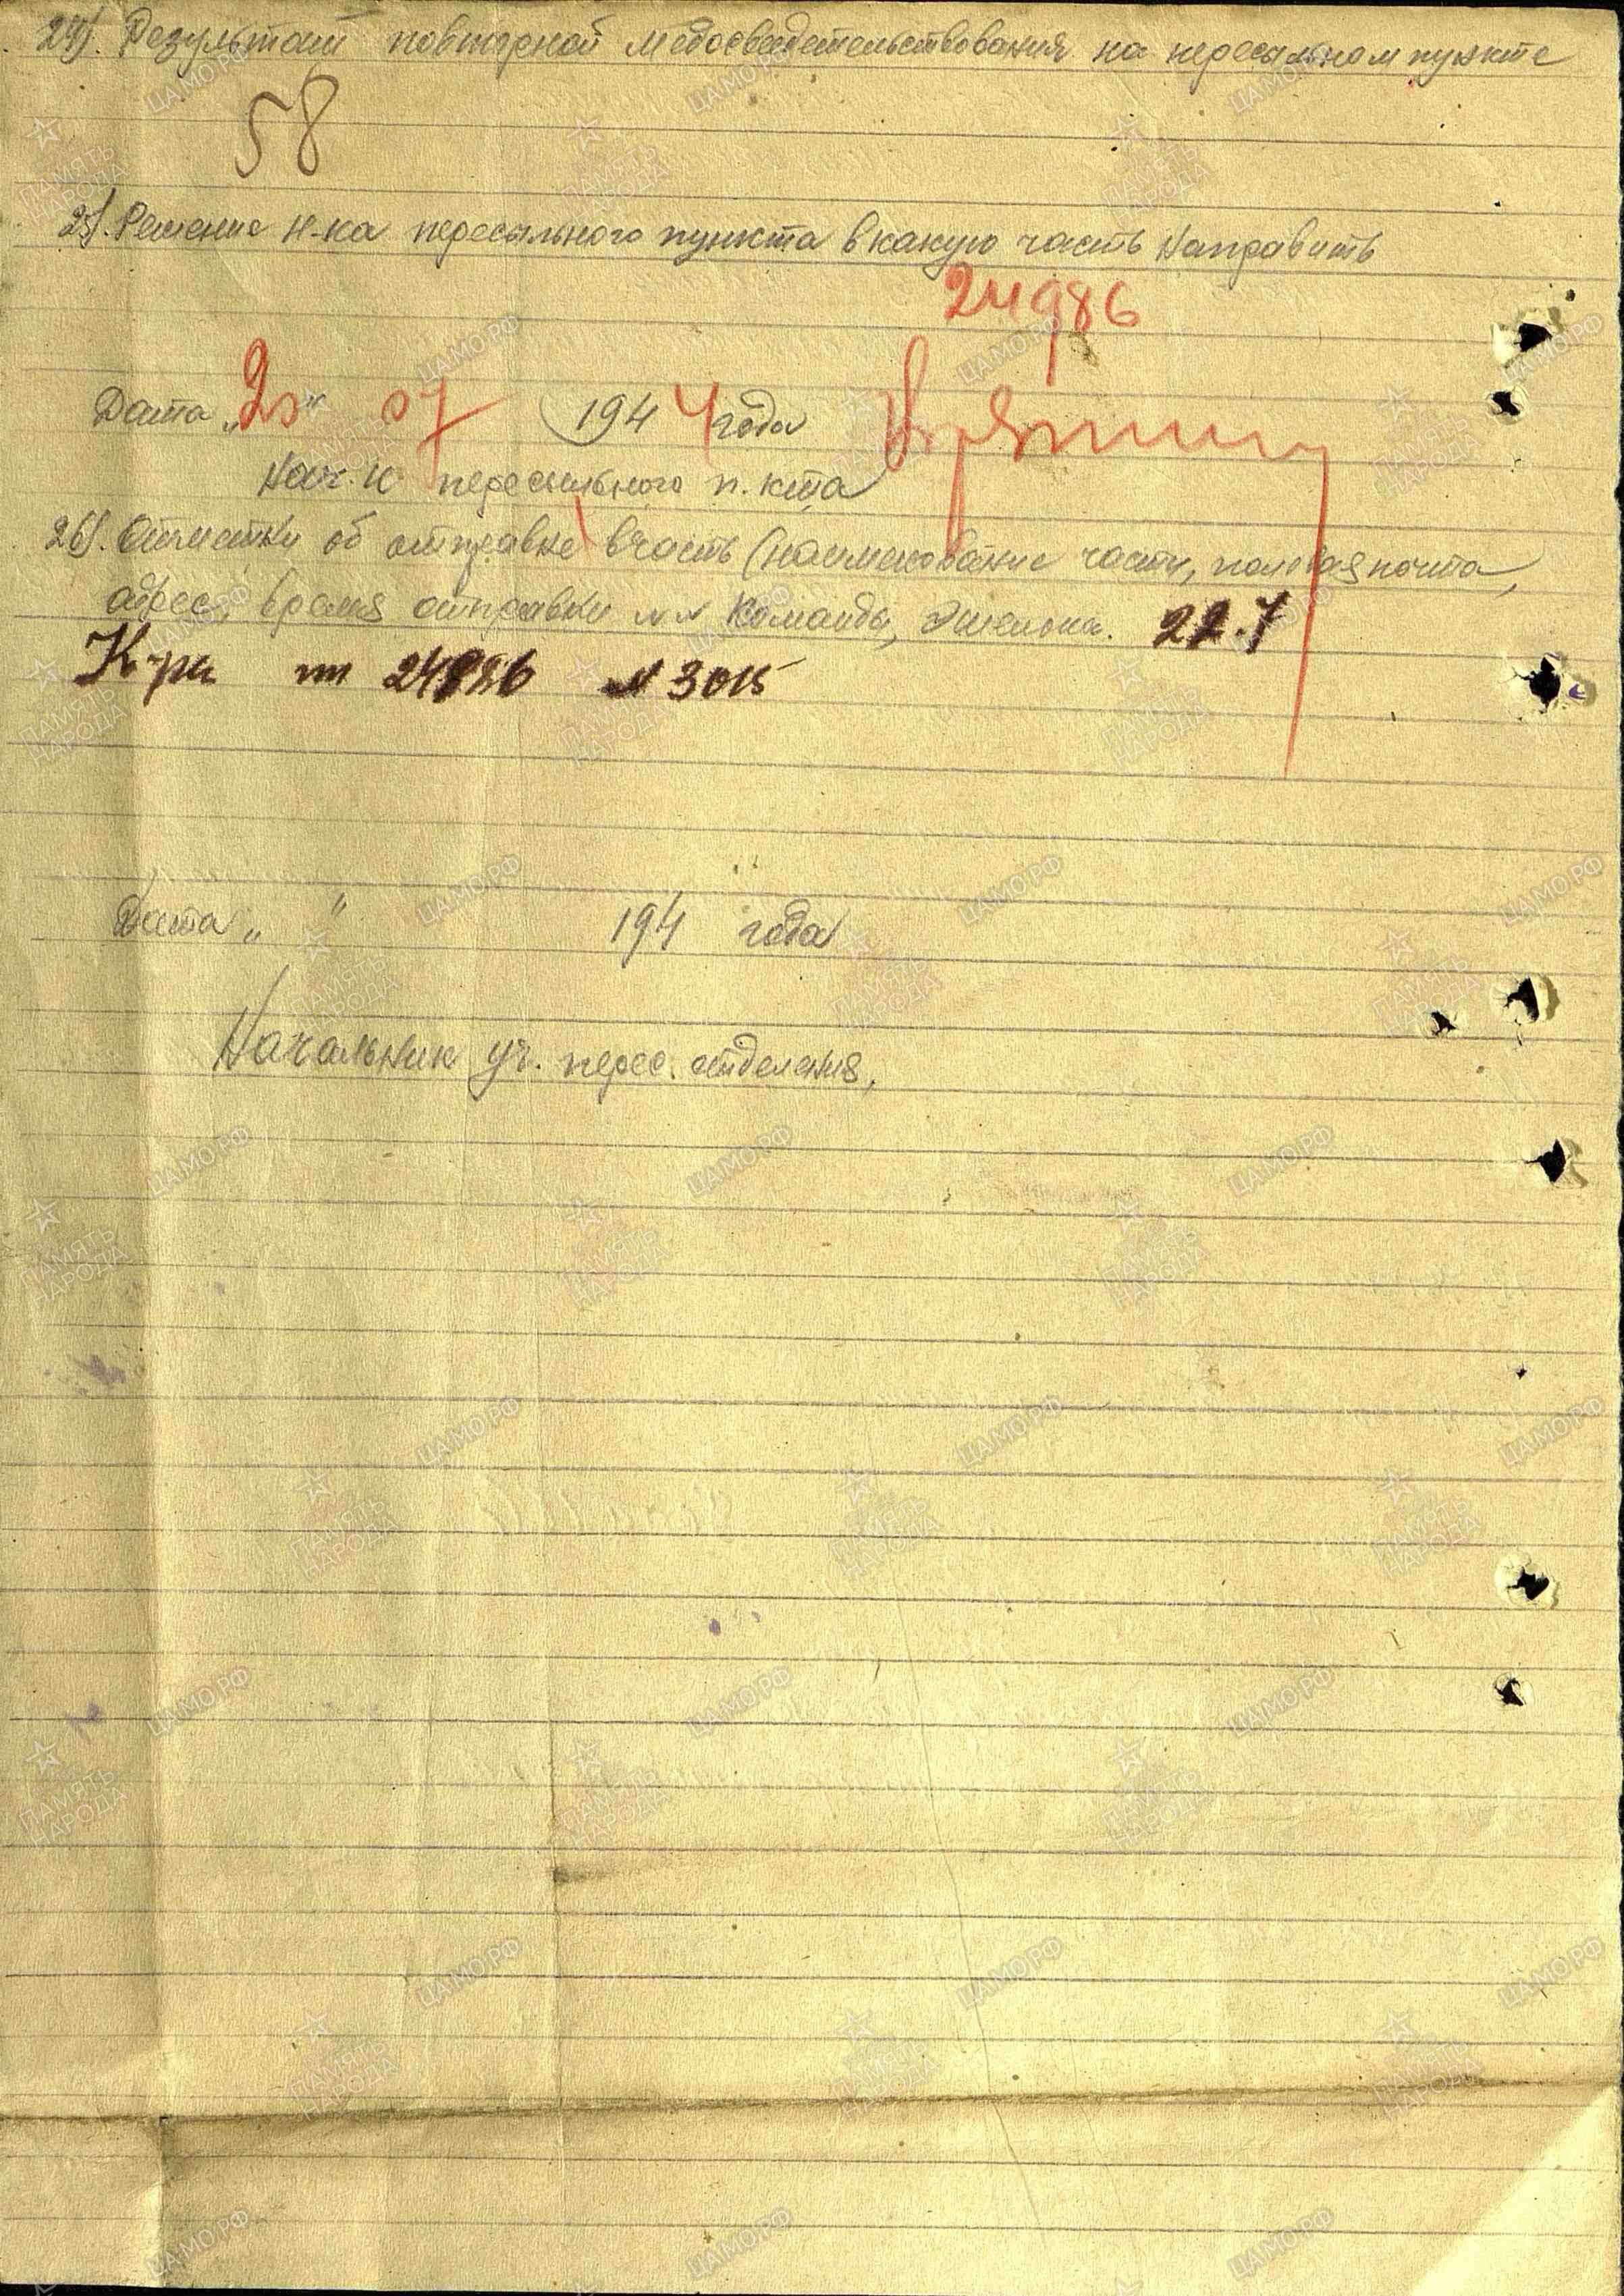 24). Результат повторной медосвидетельствования на пересыльном пункте
58
25). Решение н-ка пересыльного пункта в какую часть направить
24986
Дата „20" 07 1944 года
Нач.к пересыльного п.кта
26). Отметки об отправке в часть (наименование части, полевая почта,
адрес, время отправки №№ команды, эшелона. 22.7
К-ра пп 24986 № 3015
Дата „ " 194 года
Начальник уч. перес. отделения,